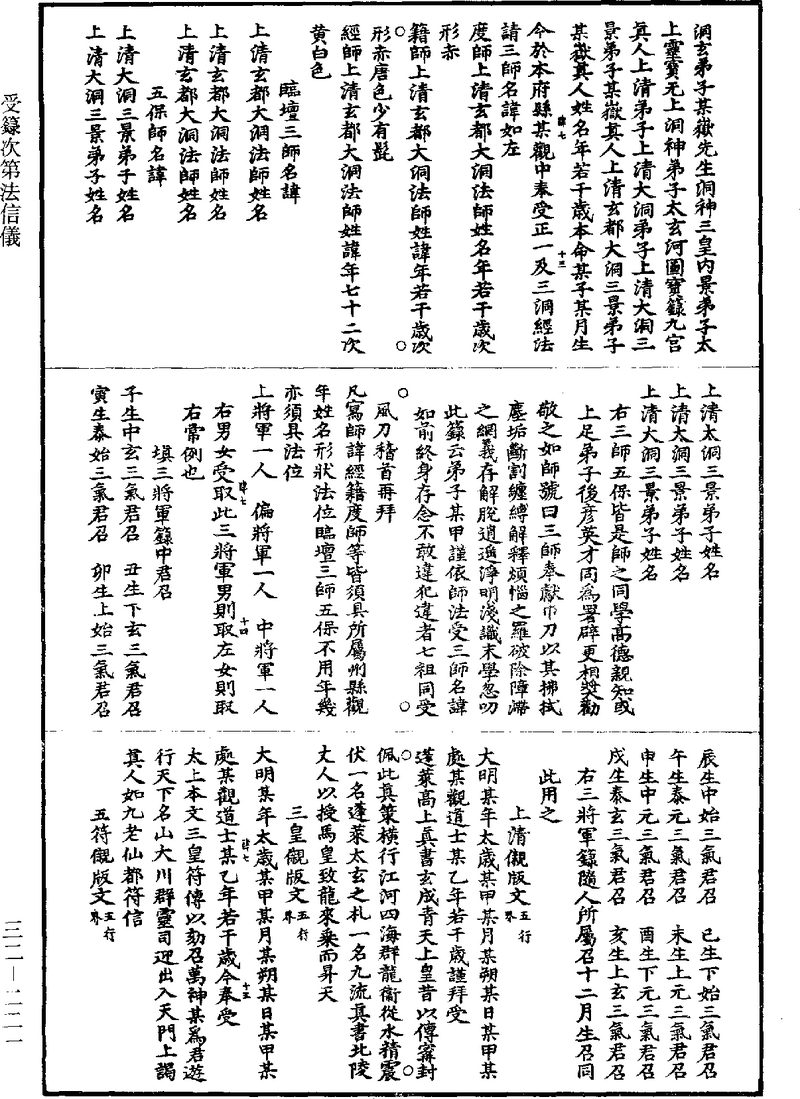 洞玄弟子某嶽先生洞神三皇內景弟子太
上靈寶无上洞神弟子太玄河圖寶籙九宮
眞人上清弟子上清大洞弟子上清大洞三
景弟子某嶽眞人上清玄都大洞三景弟子
某嶽眞人姓名年若干歲本命某子某月生
肆七
十三
今於本府縣某觀中奉受正一及三洞經法
請三師名諱如左
度師上清玄都大洞法師姓名年若干歲次
形赤
籍師上清玄都大洞法師姓諱年若干歲次
形赤唐色少有髭
經師上清玄都大洞法師姓諱年七十二次
黄白色
臨壇三師名諱
上清玄都大洞法師姓名
上清玄都大洞法師姓名
上清玄都大洞法師姓名
五保師名諱
上清大洞三景弟子姓名
上清大洞三景弟子姓名
上清太洞三景弟子姓名
上清大洞三景弟子姓名
上清大洞三景弟子姓名
右三師五保皆是師之同學高德親知或
上足弟子後彦英才同為署辟更相奬勸
敬之如師號曰三師奉獻巾刀以其拂拭
塵垢斷割纏縛解釋煩惱之羅破除障滯
之網義存解脫逍遥淨明淺識末學忽叨
此籙云弟子某甲謹依師法受三師名諱
如前終身存念不敢違犯違者七祖同受
風刀稽首再拜
凡寫師諱經籍度師等皆須具所屬州縣觀
年姓名形狀法位臨壇三師五保不用年幾
亦須具法位
上將軍一人　偏將軍一人　中將軍一人
右男女受取此三將軍男則取左女則取
肆七
十四
右常例也
填三將軍籙中君召
子生中玄三氣君召　丑生下玄三氣君召
寅生泰始三氣君召　卯生上始三氣君召
辰生中始三氣君召　巳生下始三氣君召
午生泰元三氣君召　未生上元三氣君召
申生中元三氣君召　酉生下元三氣君召
戌生泰玄三氣君召　亥生上玄三氣君召
右三將軍籙隨人所屬召十二月生召同
此用之
上清儭版文五行
大明某年太歲某甲某月某朔某日某甲某
處某觀道士某乙年若干歲謹拜受
蓬萊高上眞書玄成青天上皇昔以傳寗封
佩此眞策横行江河四海群龍衞從水精震
伏一名蓬萊太玄之札一名九流眞書北陵
丈人以授馬皇致龍來乗而昇天
三皇儭版文五行
大明某年太歲某甲某月某朔某日某甲某
處某觀道士某乙年若干歲今奉受
肆七
十五
太上本文三皇符傳以劾召萬神某為君遊
行天下名山大川群靈司迎出入天門上謁
眞人如九老仙都符信
五符儭版文五行
受籙次第法信儀
三二—二二一